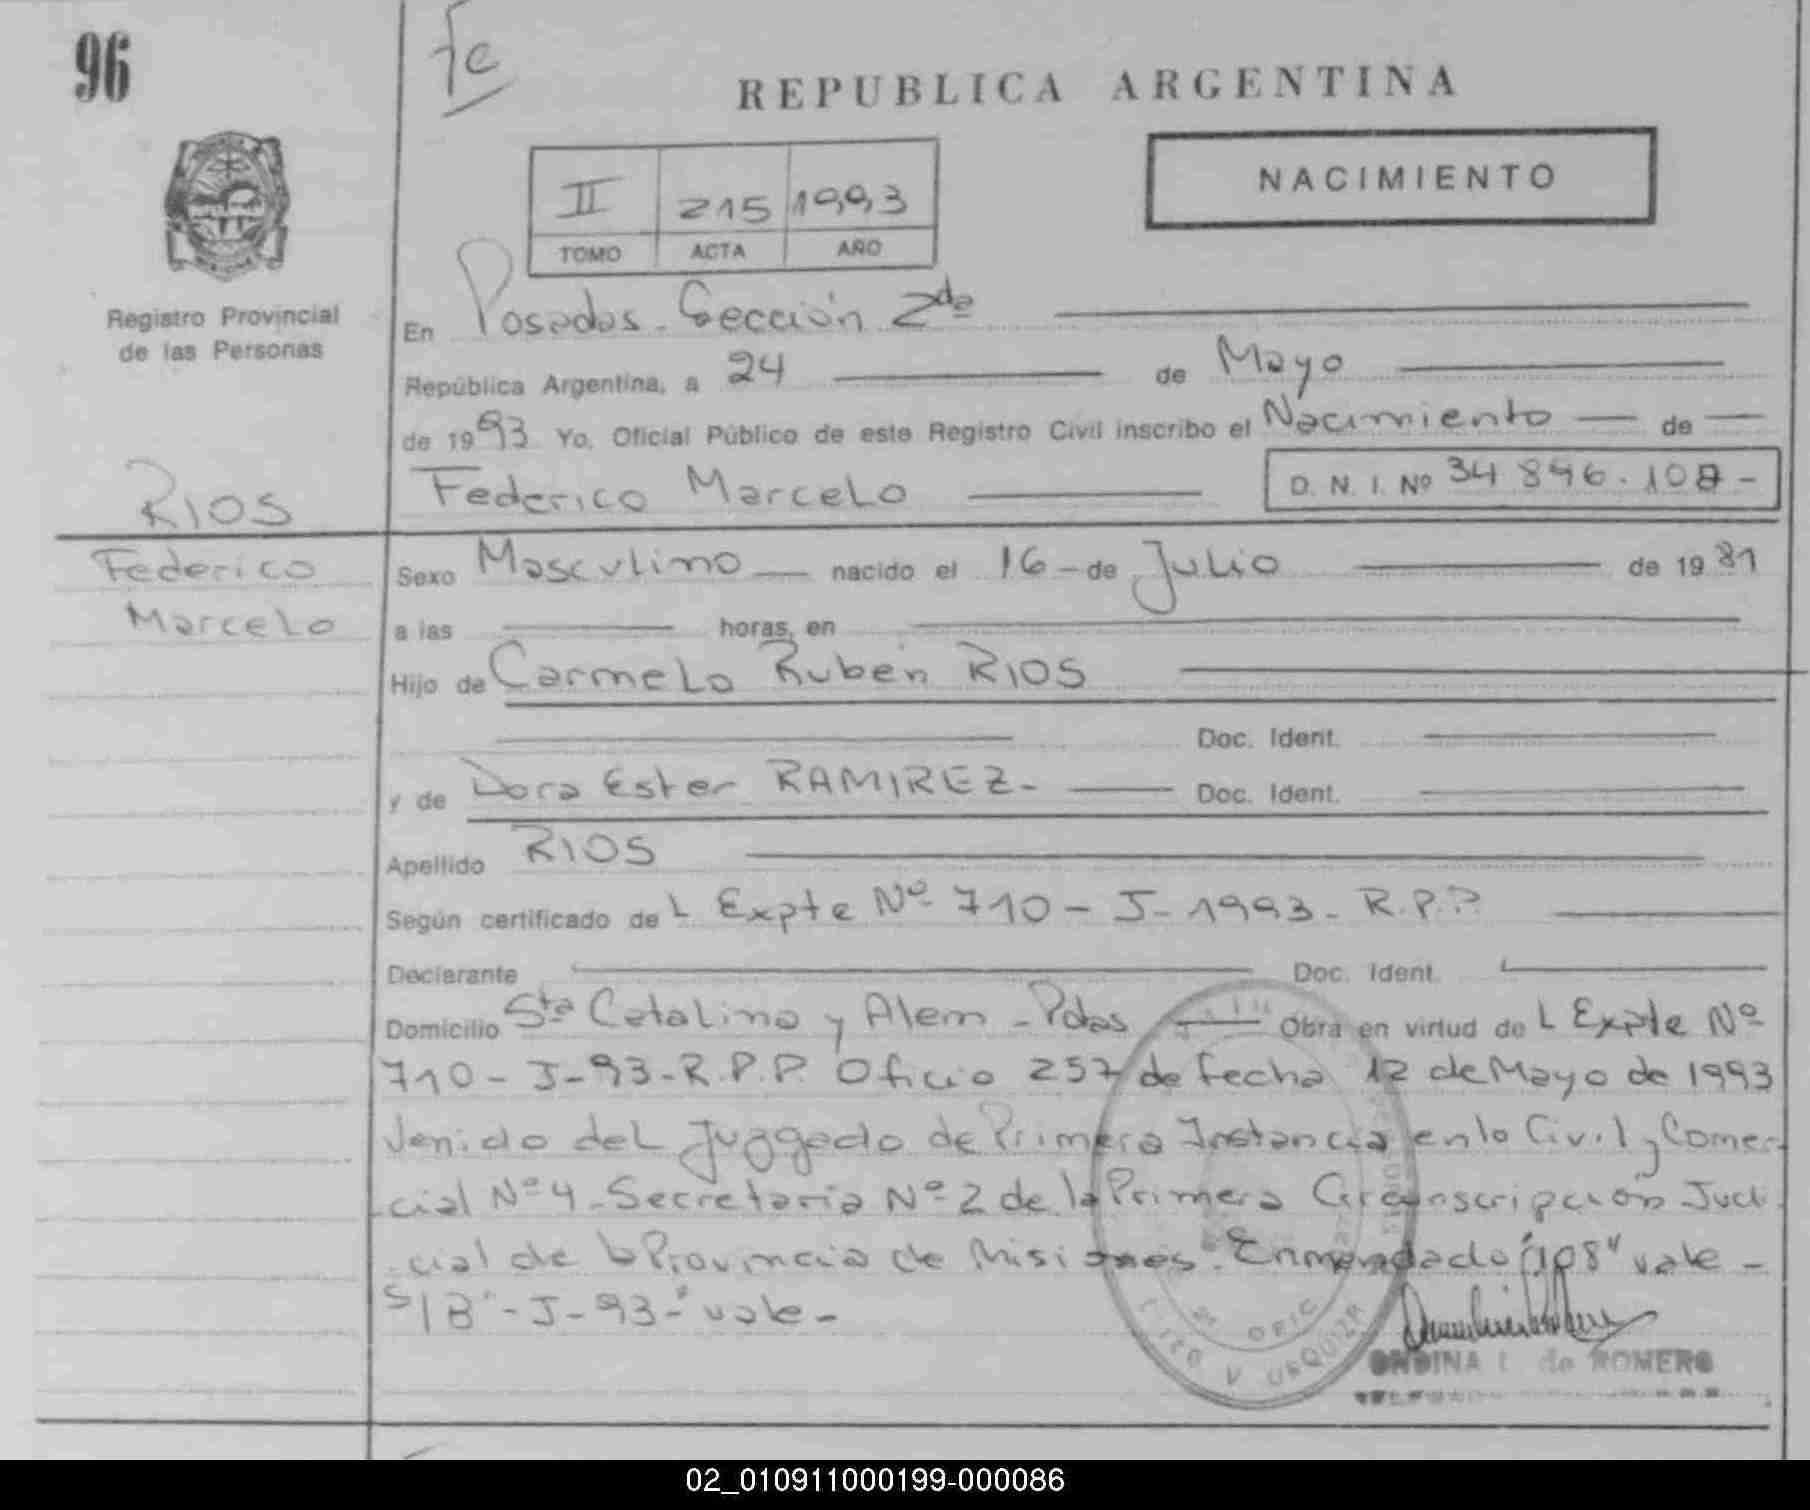 96
Fe
REPUBLICA ARGENTINA
NACIMIENTO
II 215 1993
TOMO ACTA AÑO
Registro Provincial
de las Personas
En Posadas - Sección 2da
República Argentina, a 24 de Mayo
de 1993 Yo, Oficial Público de este Registro Civil inscribo el Nacimiento de
RIOS
Federico Marcelo
D. N. I. Nº 34 896.108-
Federico
Marcelo
Sexo Masculino nacido el 16 - de Julio de 1981
a las horas, en
Hijo de Carmelo Rubén RIOS
Doc. Ident.
y de Dora Ester RAMIREZ- Doc. Ident.
Apellido RIOS
Según certificado de L Expte Nº 710 - J - 1993 - R.P.P
Declarante Doc. Ident.
Domicilio Sta Catalina y Alem - Pdas Obra en virtud de L Expte Nº
710 - J - 93 - R.P.P. Oficio 257 de fecha 12 de Mayo de 1993
Venido del Juzgado de Primera Instancia en lo Civil y Comer-
cial Nº 4 - Secretaria Nº 2 de la Primera Circunscripción Judi
cial de la Provincia de Misiones. Enmendado "108" vale -
S/B "- J - 93 -" vale -
OFIC
URQUIZA
ONDINA de ROMERO
02_010911000199-000086